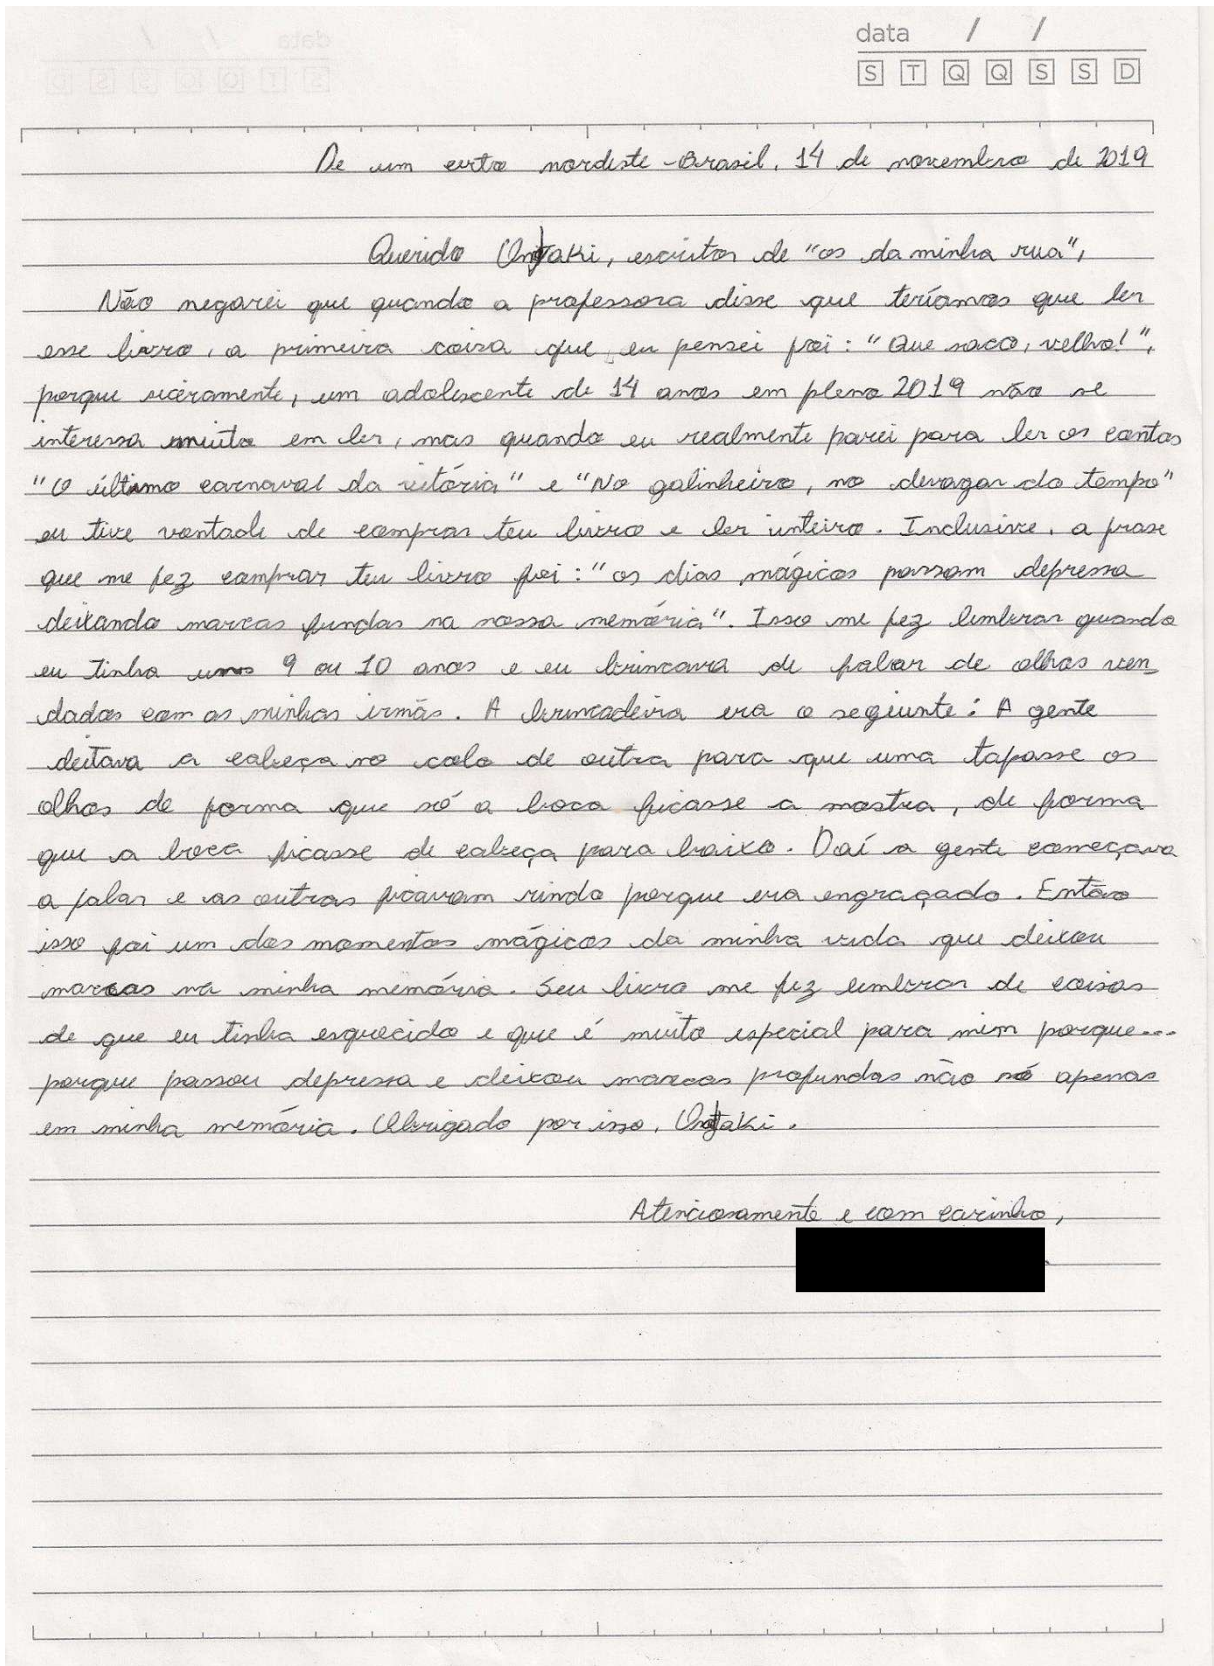 data / /
S T Q Q S S D
De um certo nordeste - Brasil, 14 de novembro de 2019
Querido Ondjaki, escritor de "os da minha rua",
Não negarei que quando a professora disse que teríamos que ler
esse livro, a primeira coisa que eu pensei foi: "Que saco, velho!",
porque siceramente, um adolescente de 14 anos em pleno 2019 não se
interessa muito em ler, mas quando eu realmente parei para ler os contos
"O último carnaval da vitória" e "No galinheiro, no devagar do tempo"
eu tive vontade de comprar teu livro e ler inteiro. Inclusive, a frase
que me fez comprar teu livro foi: "os dias mágicos passam depressa
deixando marcas fundas na nossa memória". Isso me fez lembrar quando
eu tinha uns 9 ou 10 anos e eu brincava de falar de olhos ven
dados com as minhas irmãs. A brincadeira era o segiunte: A gente
deitava a cabeça no colo de outra para que uma tapasse os
olhos de forma que só a boca ficasse a mostra, de forma
que a boca ficasse de cabeça para baixo. Daí a gente começava
a falar e as outras ficavam rindo porque era engraçado. Então
isso foi um dos momentos mágicos da minha vida que deixou
marcas na minha memória. Seu livro me fez lembrar de coisas
de que eu tinha esquecido e que é muito especial para mim porque...
porque passou depressa e deixou marcas profundas não só apenas
em minha memória. Obrigado por isso, Ondjaki.
Atenciosamente e com carinho,